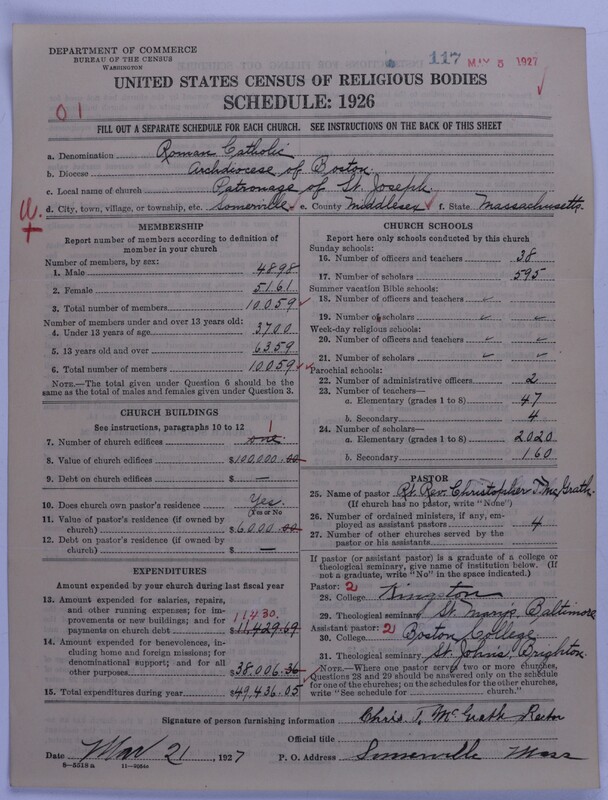 DEPARTMENT OF COMMERCE
BUREAU OF THE CENSUS
WASHINGTON
117 MAY 5 1927
UNITED STATES CENSUS OF RELIGIOUS BODIES
SCHEDULE: 1926
01
FILL OUT A SEPARATE SCHEDULE FOR EACH CHURCH. SEE INSTRUCTIONS ON THE BACK OF THIS SHEET
a. Denomination Roman Catholic
b. Diocese Archdiocese of Boston.
c. Local name of church Patronage of St. Joseph.
d. City, town, village, or township, etc. Somerville e. County Middlesex f. State Massachusetts.
MEMBERSHIP
Report number of members according to definition of member in your church
Number of members, by sex:
1. Male 4898
2. Female 5161
3. Total number of members 10059
Number of members under and over 13 years old:
4. Under 13 years of age 3700
5. 13 years old and over 6359
6. Total number of members 10059
NOTE.—The total given under Question 6 should be the same as the total of males and females given under Question 3.
CHURCH BUILDINGS
See instructions, paragraphs 10 to 12
7. Number of church edifices one 1
8. Value of church edifices $100,000.00
9. Debt on church edifices $ —
10. Does church own pastor's residence? Yes.
Yes or No
11. Value of pastor's residence (if owned by church) $6000.00
12. Debt on pastor's residence (if owned by church) $ —
EXPENDITURES
Amount expended by your church during last fiscal year
13. Amount expended for salaries, repairs, and other running expenses; for improvements or new buildings; and for payments on church debt $11,429.69 11430.
14. Amount expended for benevolences, including home and foreign missions; for denominational support; and for all other purposes $38,006.36
15. Total expenditures during year $49,436.05
CHURCH SCHOOLS
Report here only schools conducted by this church
Sunday schools:
16. Number of officers and teachers 38
17. Number of scholars 595
Summer vacation Bible schools:
18. Number of officers and teachers
19. Number of scholars
Week-day religious schools:
20. Number of officers and teachers
21. Number of scholars
Parochial schools:
22. Number of administrative officers 2
23. Number of teachers—
a. Elementary (grades 1 to 8) 47
b. Secondary 4
24. Number of scholars—
a. Elementary (grades 1 to 8) 2020
b. Secondary 160
PASTOR
25. Name of pastor Rt. Rev. Christopher T. McGrath
(If church has no pastor, write "None")
26. Number of ordained ministers, if any, employed as assistant pastors 4
27. Number of other churches served by the pastor or his assistants
If pastor (or assistant pastor) is a graduate of a college or theological seminary, give name of institution below. (If not a graduate, write "No" in the space indicated.)
Pastor: 2
28. College Kingston
29. Theological seminary St. Mary's Baltimore
Assistant pastor: 2
30. College Boston College
31. Theological seminary St. Johns Brighton.
NOTE.—Where one pastor served two or more churches, Questions 28 and 29 should be answered only on the schedule for one of the churches; on the schedules for the other churches, write "See schedule for church."
Signature of person furnishing information Chris T. McGrath Rector
Official title
Date Mar 21, 1927 P. O. Address Somerville Mass
8—5518a 11—9064a